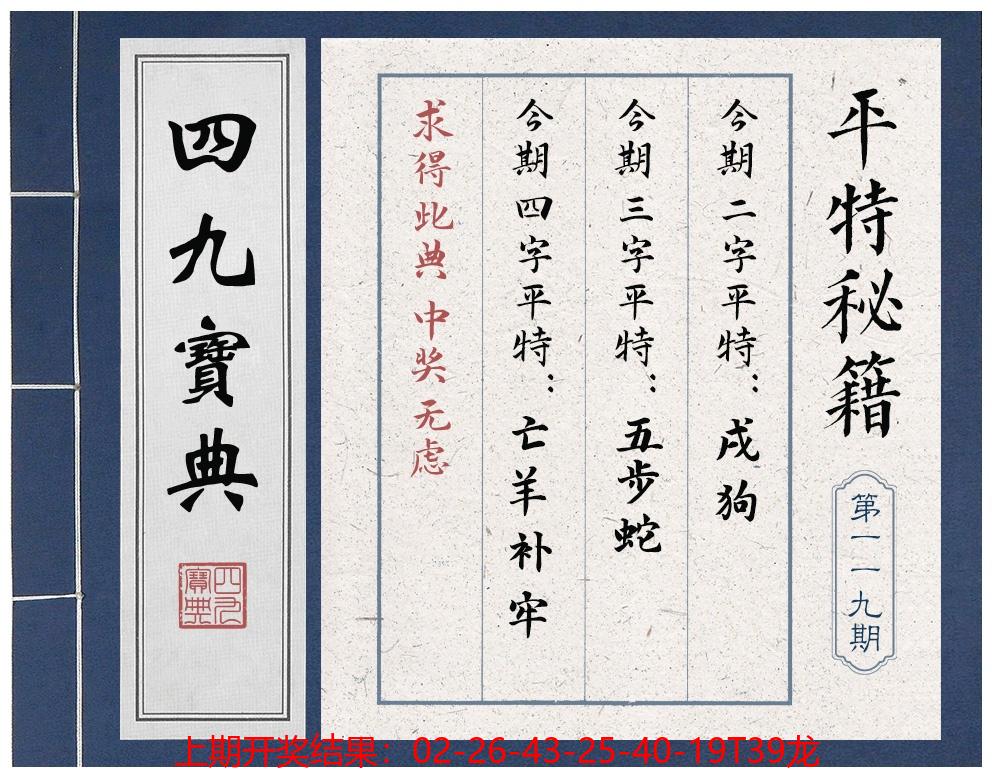 平特秘籍
第一一九期
今期二字平特：戌狗
今期三字平特：五步蛇
今期四字平特：亡羊补牢
求得此典 中奖无虑
四九寶典
四九寶典
上期开奖结果：02-26-43-25-40-19T39龙